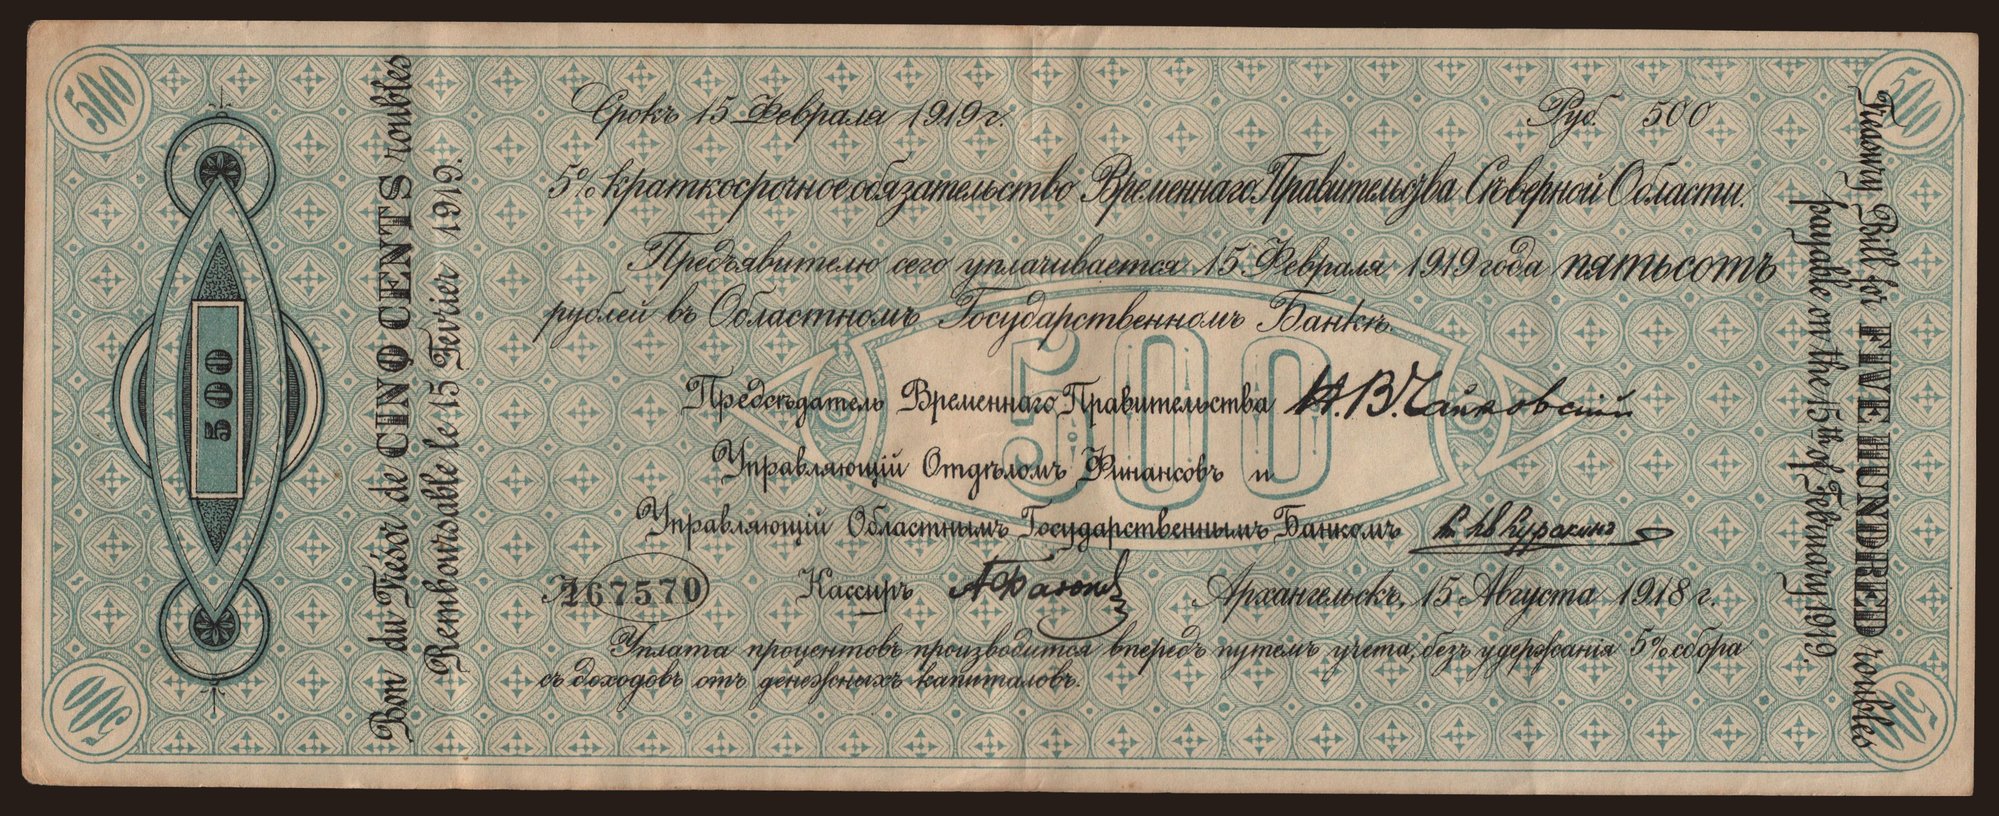 500
500
Срокъ 15 Февраля 1919 г.
Руб. 500
5% краткосрочное обязательство Временнаго Правительства Сѣверной Области.
Предъявителю сего уплачивается 15 Февраля 1919 года пятьсотъ
рублей въ Областномъ Государственномъ Банкѣ.
500
Предсѣдатель Временнаго Правительства Н. В. Чайковскій
Управляющій Отдѣломъ Финансовъ и
Управляющій Областнымъ Государственнымъ Банкомъ
167570
Кассиръ
Архангельскъ, 15 Августа 1918 г.
Уплата процентовъ производится впередъ путемъ учета, безъ удержания 5% сбора
съ доходовъ отъ денежныхъ капиталовъ.
500
Bon du Trésor de CINQ CENTS roubles
Remboursable le 15 Fevrier 1919.
Treasury Bill for FIVE HUNDRED roubles
payable on the 15th of February 1919.
500
500